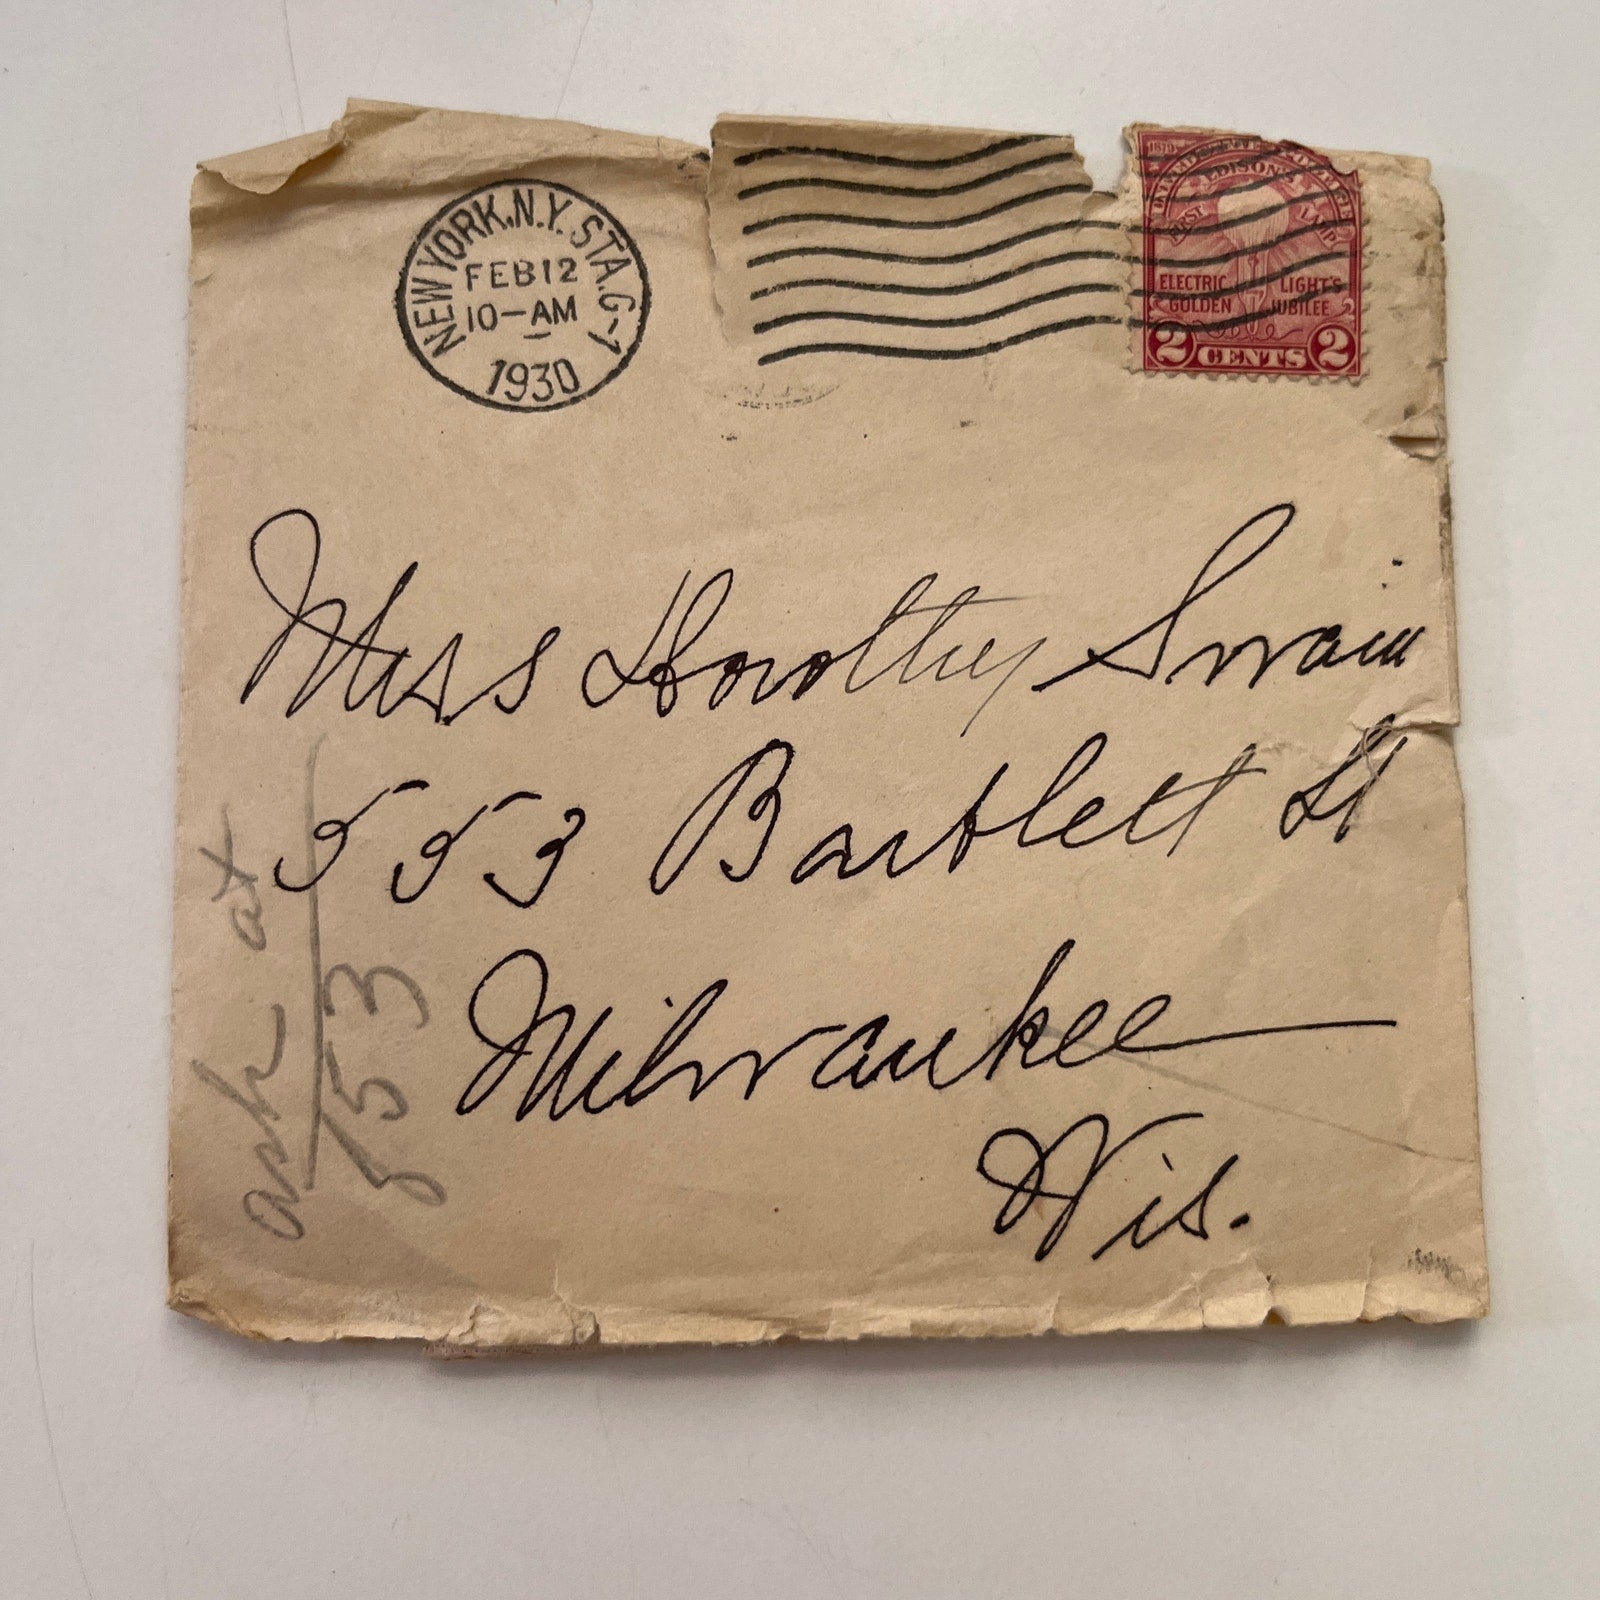 NEW YORK, N.Y. STA. G-1
FEB 12
10-AM
1930
1879
EDISON'S
FIRST LAMP
ELECTRIC LIGHT'S
GOLDEN JUBILEE
2 CENTS 2
Miss Dorothy Swain
553 Bartlett St
Milwaukee
Wis.
ask at
853